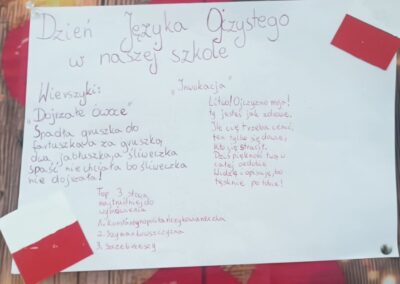 Dzień Języka Ojczystego
w naszej szkole
Wierszyki:
"Dojrzałe owoce"
Spadła gruszka do
fartuszka, a za gruszką
dwa jabłuszka, a śliweczka
spaść nie chciała bo śliweczka
nie dojrzała!
"Inwokacja"
Litwo! Ojczyzno moja!
ty jesteś jak zdrowie,
Ile cię trzeba cenić,
ten tylko się dowie,
kto cię stracił.
Dziś piękność twą w
całej ozdobie
Widzę i opisuję, bo
tęsknię po tobie!
Top 3 słowa
najtrudniej do
wymówienia
2. Szymankowszczyzna
3. Szczebrzeszyn